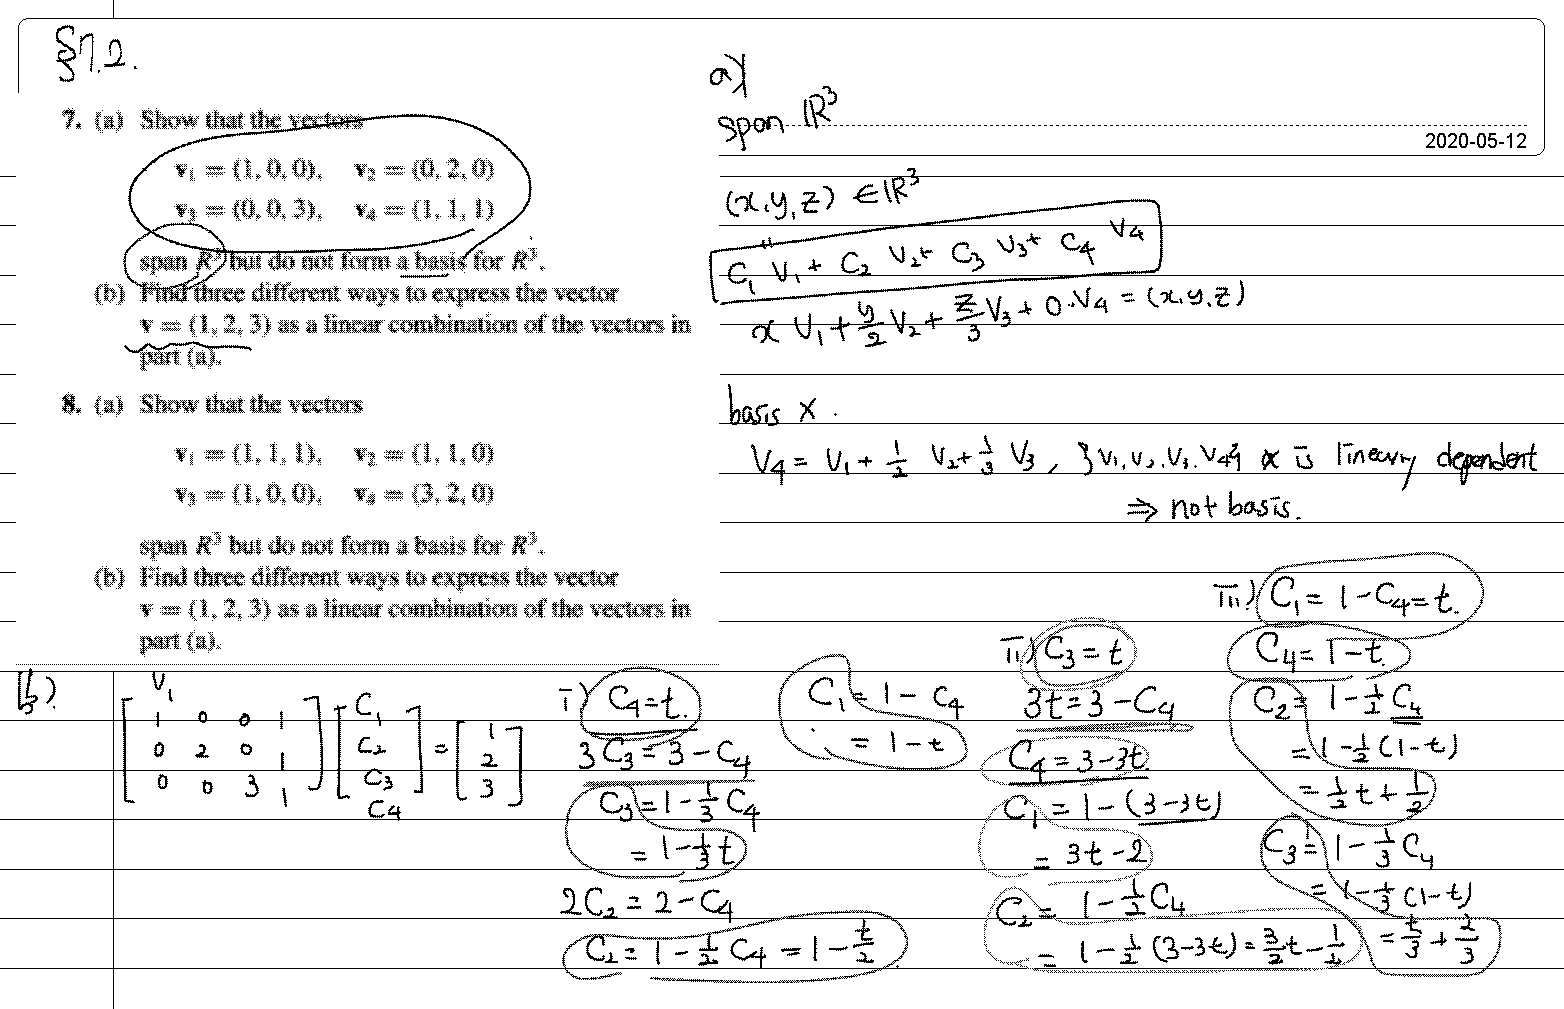 §7.2.
7. (a) Show that the vectors
v₁ = (1, 0, 0), v₂ = (0, 2, 0)
v₃ = (0, 0, 3), v₄ = (1, 1, 1)
span R³ but do not form a basis for R³.
(b) Find three different ways to express the vector
v = (1, 2, 3) as a linear combination of the vectors in
part (a).
8. (a) Show that the vectors
v₁ = (1, 1, 1), v₂ = (1, 1, 0)
v₃ = (1, 0, 0), v₄ = (3, 2, 0)
span R³ but do not form a basis for R³.
(b) Find three different ways to express the vector
v = (1, 2, 3) as a linear combination of the vectors in
part (a).
a)
span ℝ³
2020-05-12
(x,y,z) ∈ ℝ³
"
C₁ V₁ + C₂ V₂ + C₃ V₃ + C₄ V₄
x V₁ + y/2 V₂ + z/3 V₃ + 0·V₄ = (x,y,z)
basis X.
V₄ = V₁ + 1/2 V₂ + 1/3 V₃, {V₁, V₂, V₃, V₄} is linearly dependent
⇒ not basis.
b).
V₁
[1 0 0 1] [C₁] [1]
[0 2 0 1] [C₂] = [2]
[0 0 3 1] [C₃] [3]
C₄
i) C₄ = t.
3C₃ = 3 - C₄
C₃ = 1 - 1/3 C₄
= 1 - 1/3 t
2C₂ = 2 - C₄
C₂ = 1 - 1/2 C₄ = 1 - t/2
C₁ = 1 - C₄
= 1 - t
ii) C₃ = t
3t = 3 - C₄
C₄ = 3 - 3t
C₁ = 1 - (3 - 3t)
= 3t - 2
C₂ = 1 - 1/2 C₄
= 1 - 1/2 (3 - 3t) = 3/2 t - 1/2
iii) C₁ = 1 - C₄ = t.
C₄ = 1 - t.
C₂ = 1 - 1/2 C₄
= 1 - 1/2 (1 - t)
= 1/2 t + 1/2
C₃ = 1 - 1/3 C₄
= 1 - 1/3 (1 - t)
= t/3 + 2/3